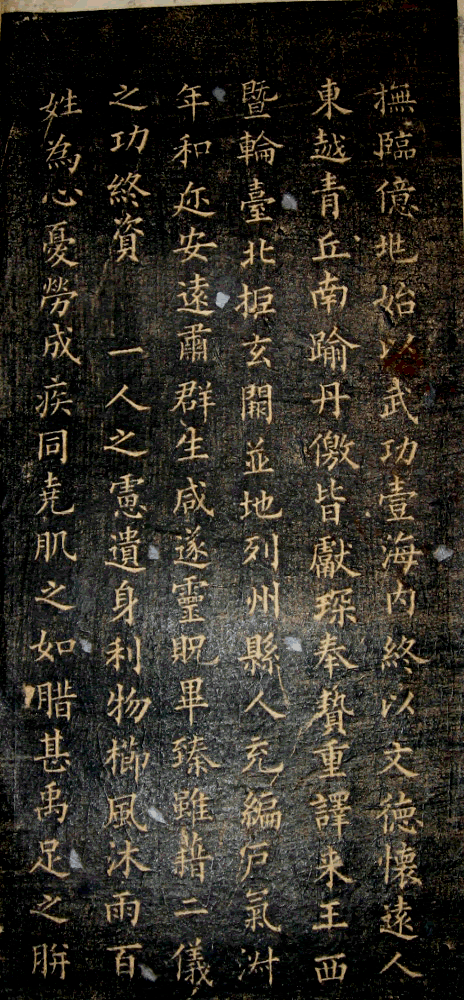 撫臨億兆始以武功壹海内終以文德懷遠人
東越青丘南踰丹徼皆獻琛奉贄重譯来王西
暨輪臺北拒玄闕並地列州縣人充編戶氣淑
年和迩安遠肅群生咸遂靈貺畢臻雖藉二儀
之功終資 一人之慮遺身利物櫛風沐雨百
姓為心憂勞成疾同堯肌之如腊甚禹足之胼